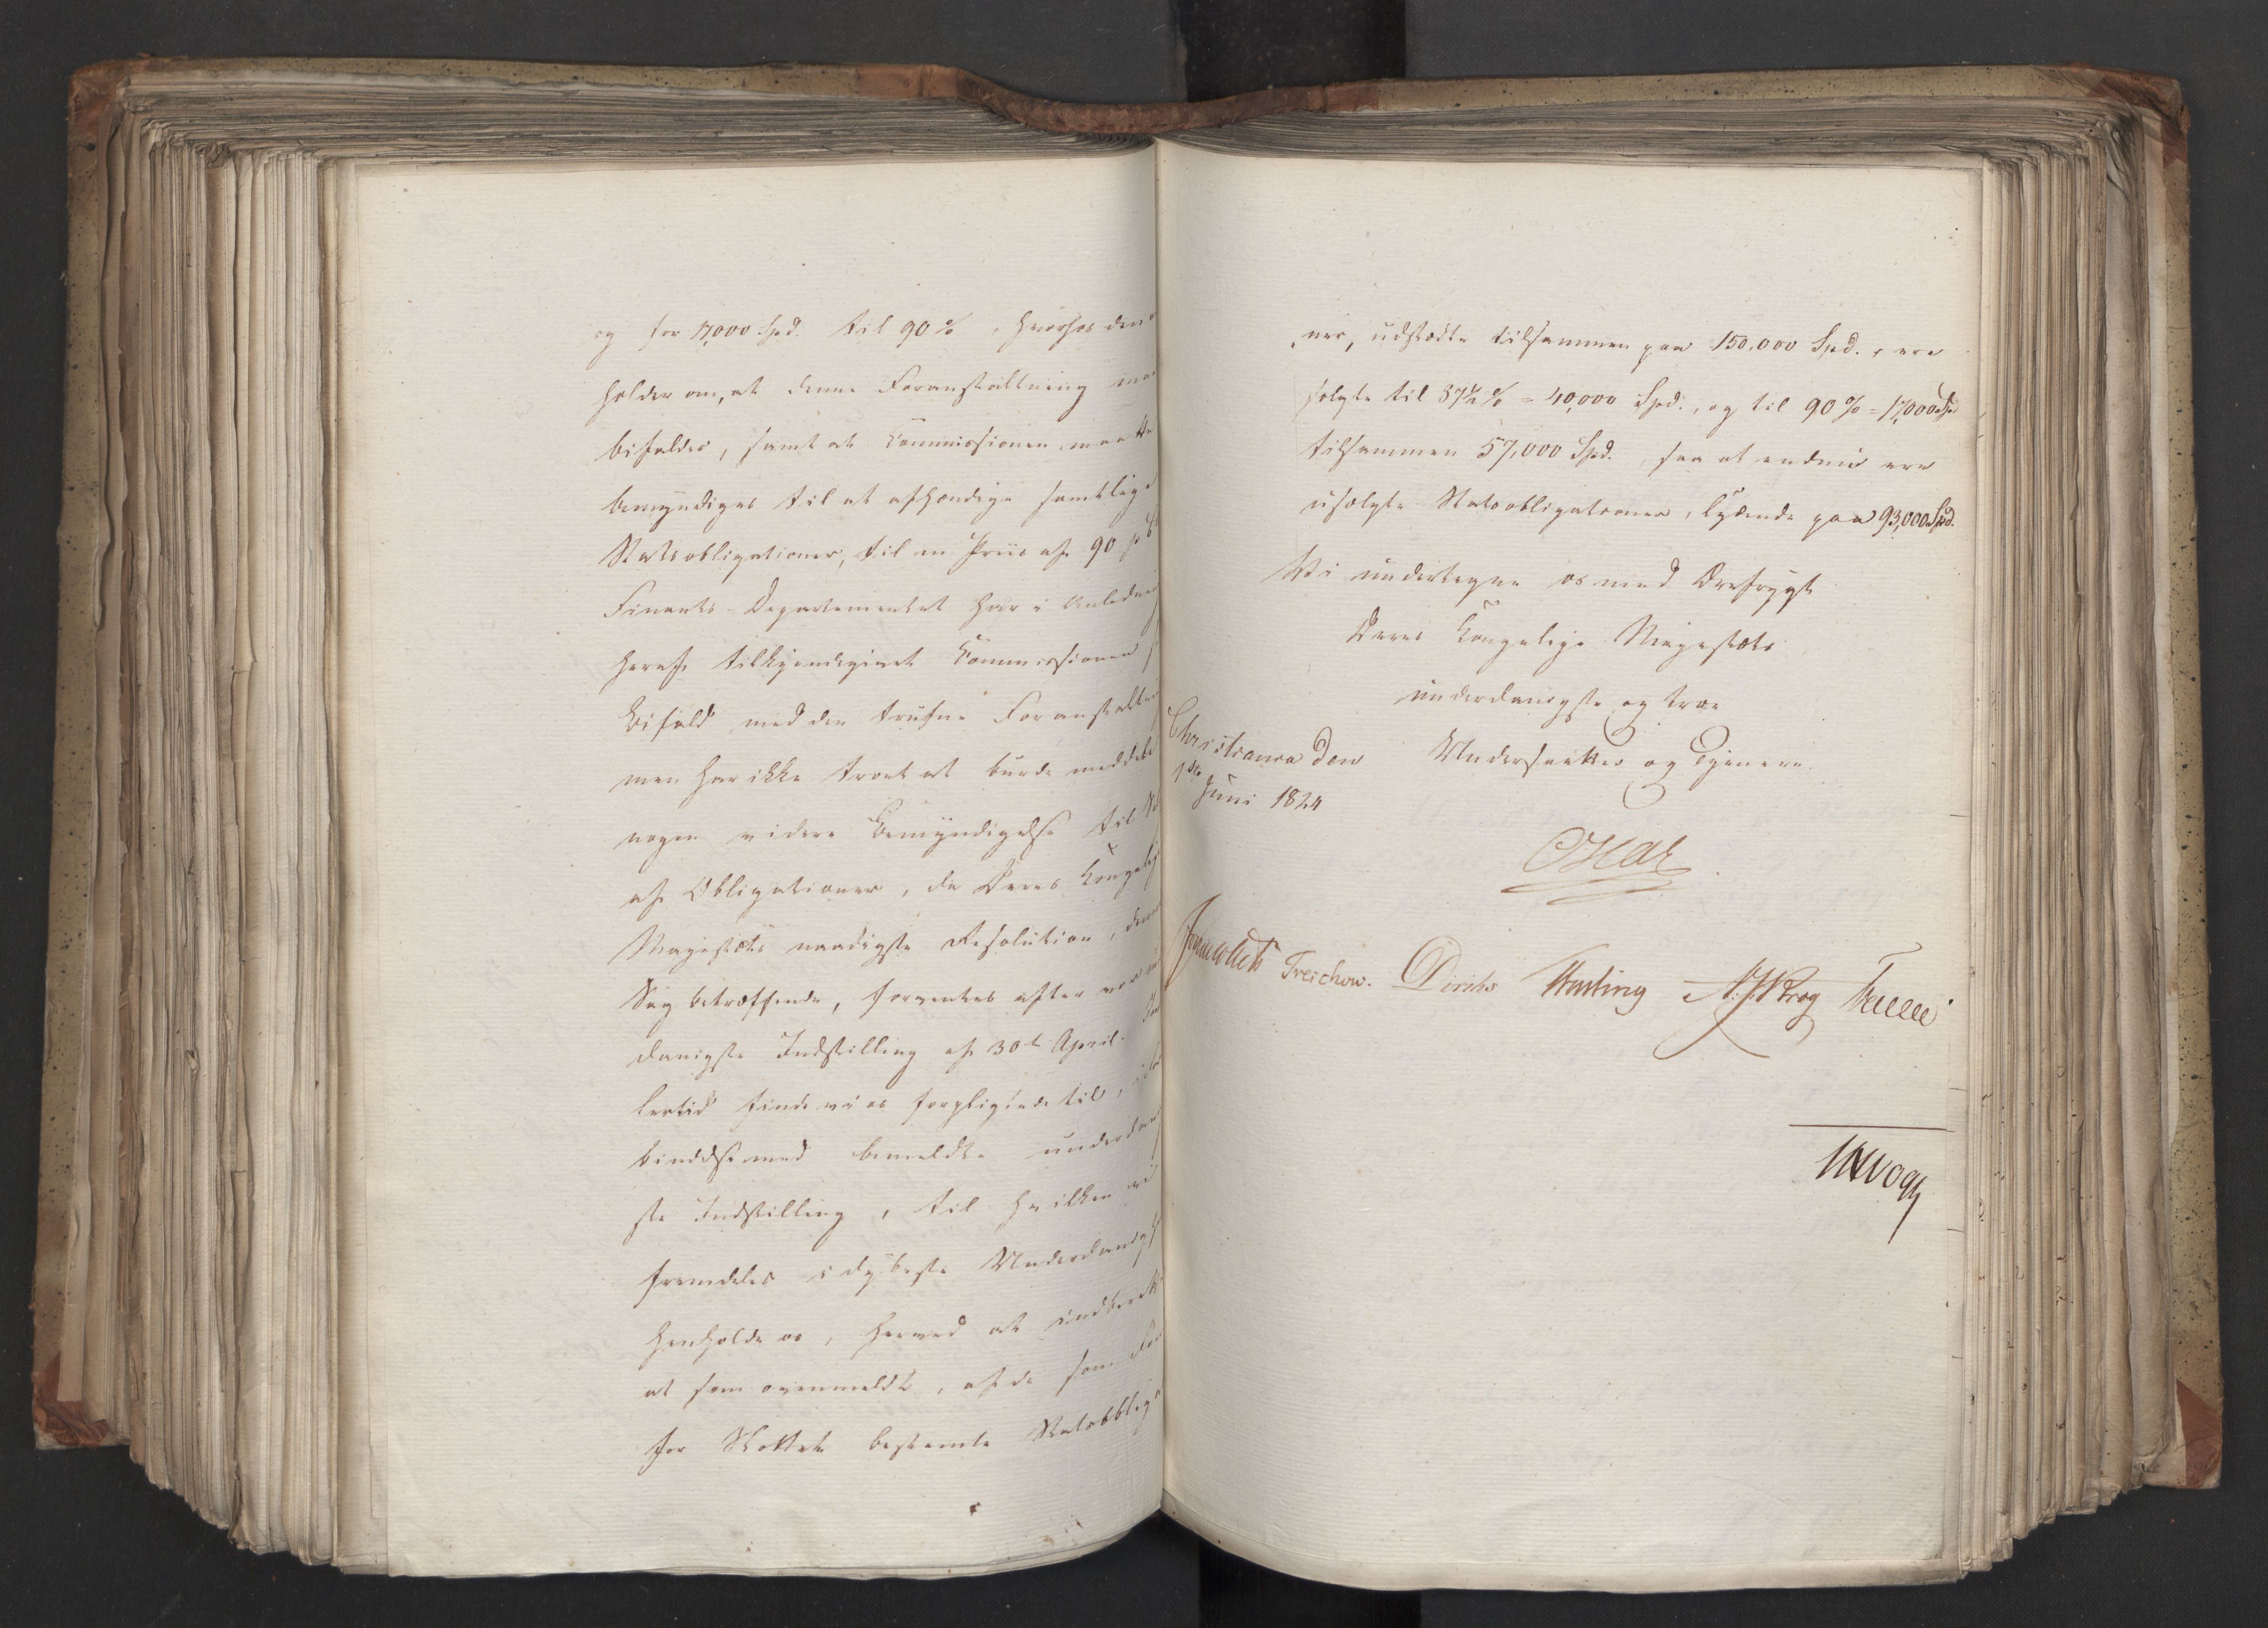 og for 17,000 Spd. til 90 %, hvorhos den
holder om, at denne Foranstaltning maa
bifaldes, samt at Commissionen maatte
bemyndiges til at afhændige samtlige
Statsobligationer, til en Priis af 90 p
Finants-Departementet har i Anledning
heraf tilkjendegivet Commissionen
Bifald med den trufne Foranstalt
men har ikke troet at burde meddele
nogen videre Bemyndigelse til
af Obligationer, da Deres Kongelige
Majestæts naadigste Resolution, denne
Sag betræffende, forventes efter vor
danigste Indstilling af 30te April.
lertid finde vi os forpligtede til, i
bindelse med bemeldte underdan
ste Indstilling, til hvilken vi
fremdeles i dybeste Underdanigh
henholde os, herved at indberette
at som ovenmeldt, af de som
for Slottet bestemte Statsobliga
ner, udstædte tilsammen paa 150,000 Spd., ere
solgte til 87½ % = 40,000 Spd., og til 90 % = 17,000 Spd
tilsammen 57,000 Spd., saa at endnu ere
usolgte Statsobligationer, lydende paa 93,000 Spd.
Vi undertegne os med Ærefrygt
Deres Kongelige Majestæts
underdanigste og troe
Undersaatter og Tjenere.
Christiania den
1ste Juni 1824
Oscar
Sommerhielm Treschow. Diriks Hasting A. J. Krog Fasting
Vogt